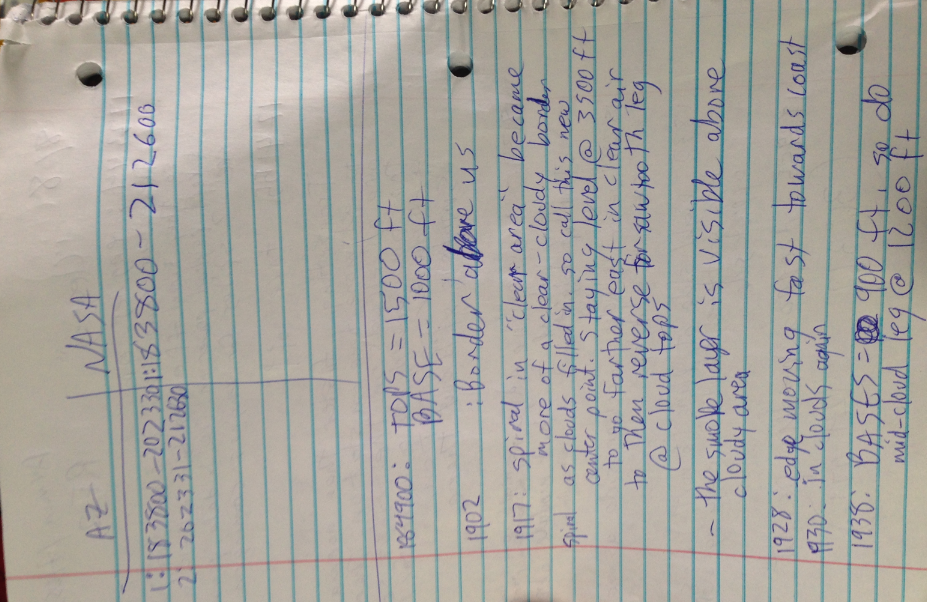 AZ NASA
1: 183800-202330 1: 183800-212600
2: 202331-212600
184900: TOPS = 1500 ft
BASE = 1000 ft
1902 : Border above us
1917: spiral in "clear area" became
more of a clear-cloudy border
as clouds filled in. so call this new
spiral center point. Staying level @ 3500 ft
to go farther east in clear air
to then reverse for sawtooth leg
@ cloud tops
- the smoke layer is visible above
cloudy area
1928: edge moving fast towards coast
1930: in clouds again
1938: BASES = 900 ft, so do
mid-cloud leg @ 1200 ft